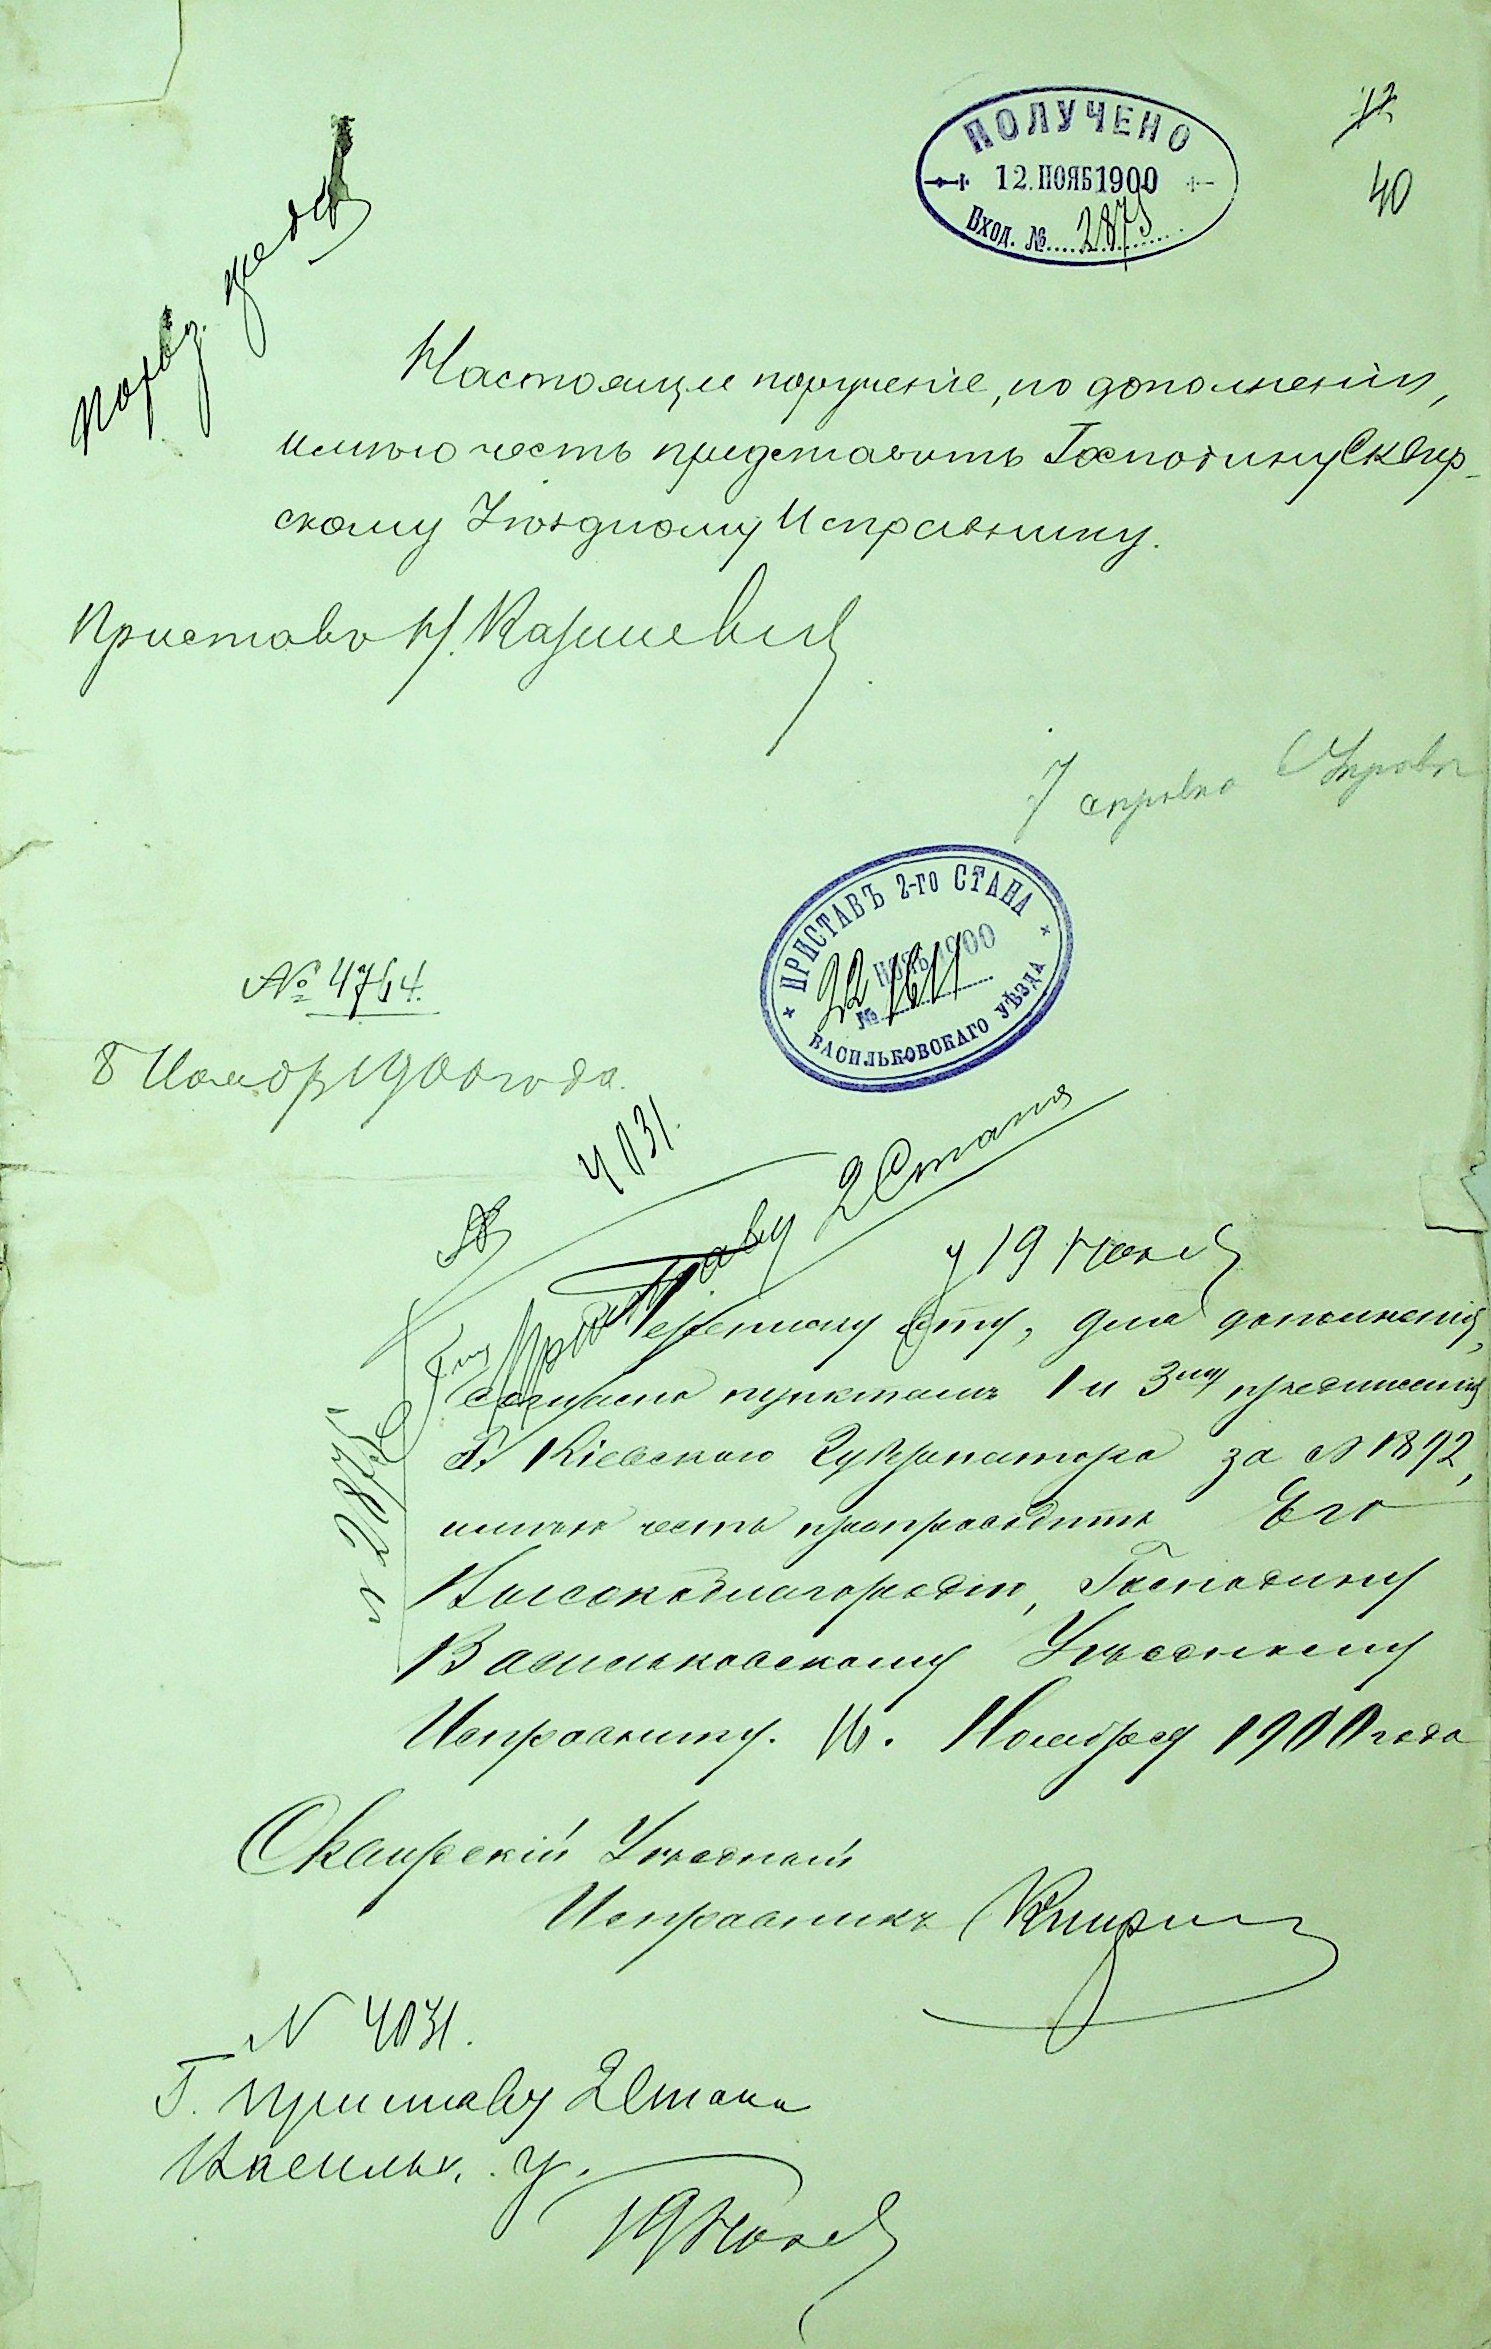 12
40
ПОЛУЧЕНО
12. НОЯБ 1900
Вход. № 2875
Настоящее порученіе, по дополненіи,
имѣю честь представить Господину Сквир-
скому Уѣздному Исправнику.
Приставъ
справка
ПРИСТАВЪ 2-ГО СТАНА
22 НОЯБ. 1900
№ 1611
ВАСИЛЬКОВСКАГО УѢЗДА
№ 4754.
8 Ноября 1900 года.
4031.
Приставу 2 Стана
19 Нояб
№ 2875
Переписку эту, для дополненія,
согласно пунктамъ 1 и 3му предписанія
Г. Кіевскаго Губернатора за № 1892,
имѣю честь препроводить Его
Высокоблагородію, Господину
Васильковскому Уѣздному
Исправнику. 16. Ноября 1900 года
Сквирскій Уѣздный
Исправникъ
N 4031.
Г. Приставу 2 Стана
Васильк. у.
19 Нояб